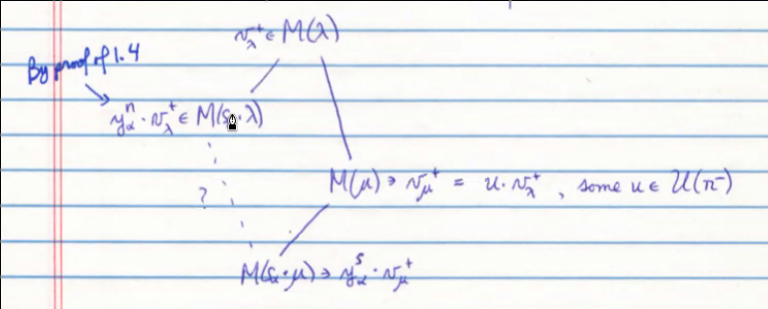 v_λ^+ ∈ M(λ)
By proof of 1.4
y_α^n · v_λ^+ ∈ M(s_α·λ)
M(μ) ∋ v_μ^+ = u · v_λ^+ , some u ∈ U(n^-)
?
M(s_α·μ) ∋ y_α^s · v_μ^+